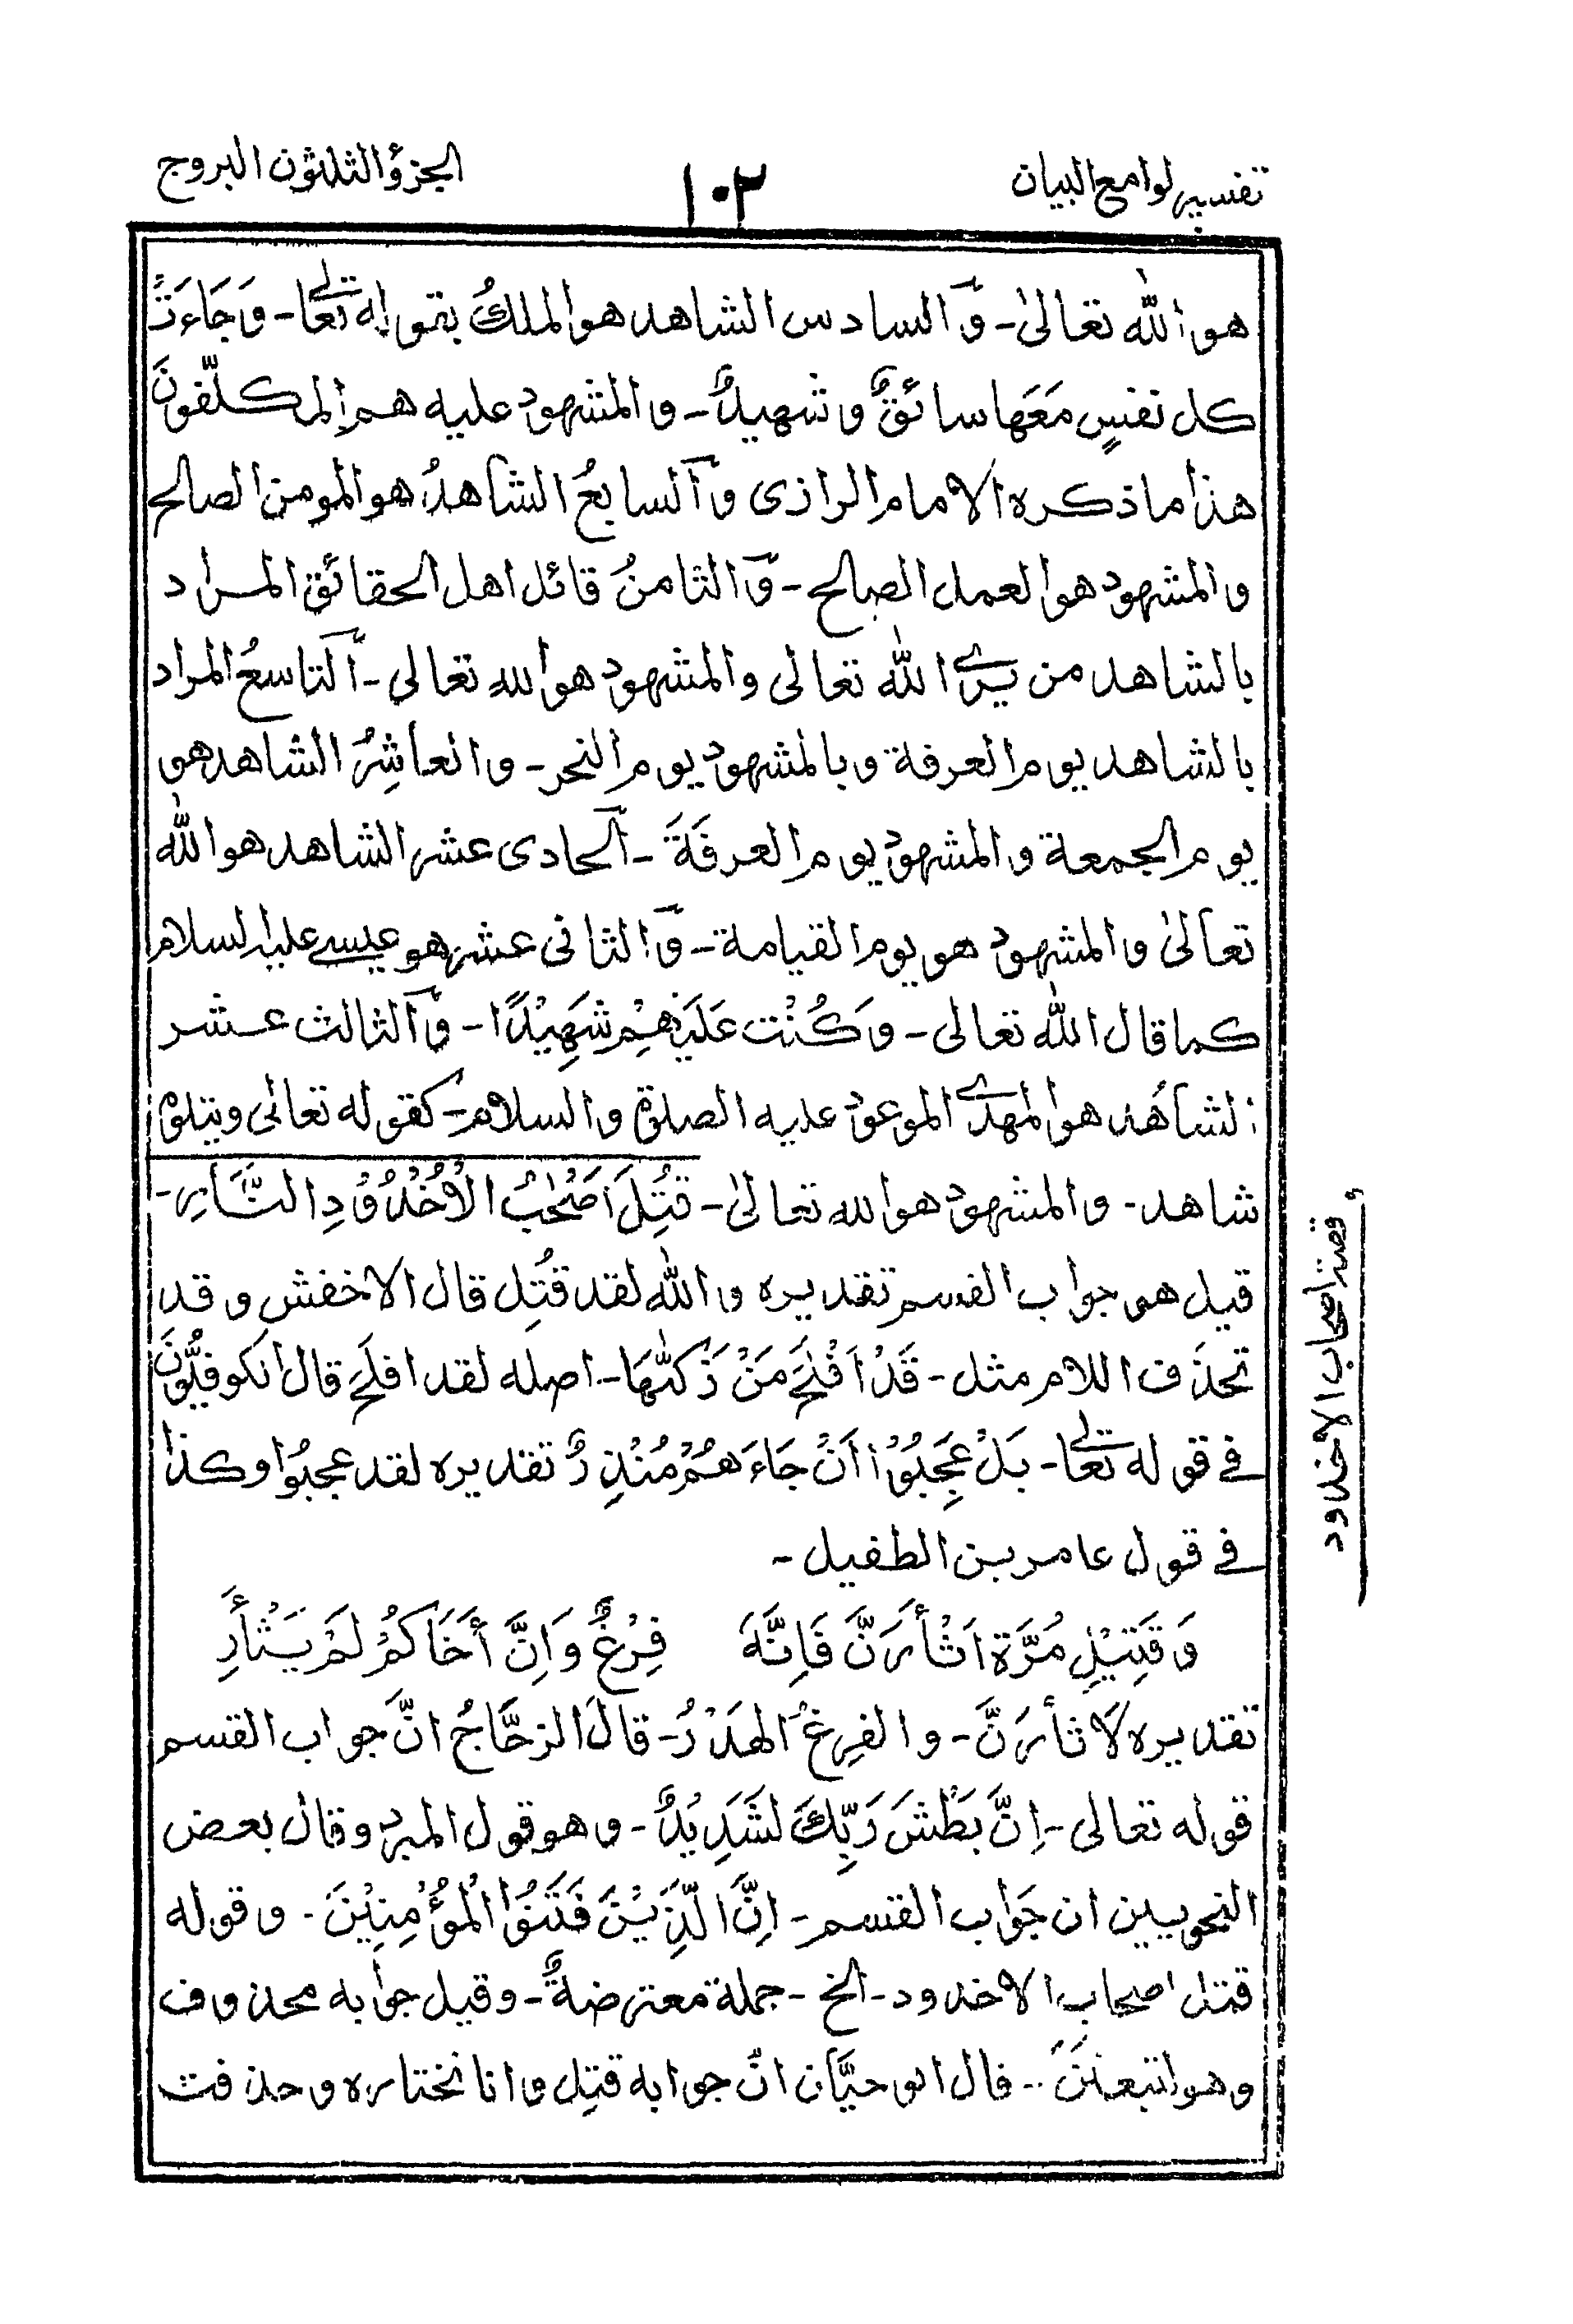 تفسير لوامع البيان
١٠٢
الجزؤ الثلثون البروج
هو الله تعالىٰ - وٓالسادس الشاهد هو الملكُ بقوله تعالى - وَجَاءَتْ
كل نفسٍ مَعَها سائقٌ وشهيدٌ - والمشهود عليه هم المكلّفونَ
هذا ما ذكره الامام الرازى وٓالسابعُ الشاهدُ هو المومن الصالح
والمشهود هو العمل الصالح - وٓالثامنُ قائل اهل الحقائق المراد
بالشاهد من يرَى اللّٰه تعالى والمشهود هو الله تعالى - آلتاسعُ المراد
بالشاهد يوم العرفة وبالمشهود يوم النحر - والعاشِرُ الشاهد هو
يوم الجمعة والمشهود يوم العرفَةَ - آلحادى عشر الشاهد هو اللّٰه
تعالىٰ والمشهود هو يوم القيامة - وٓالثانى عشر هو عيسى عليه السلام
كما قال اللّٰه تعالى - وَكُنْت عَلَيْهِمْ شَهِيْدًا - وٓالثالث عشر
الشاهد هو المهدى الموعود عليه الصلوة والسلام - كقوله تعالى ويتلوه
شاهد - والمشهود هو الله تعالىٰ - قُتِلَ اَصْحٰبُ الْاُخْدُوْدِ النَّارِ -
قيل هو جواب القسم تقديره واللّٰه لقد قُتِل قال الاخفش وقد
تحذَف اللام مثل - قَدْ اَفْلَحَ مَنْ زَكّٰىهَا - اصله لقد افلَحَ قال الكوفيُّونَ
فى قوله تعالى - بَلْ عَجِبُوْا اَنْ جَاءَ هُمْ مُنْذِرٌ تقديره لقد عجبُوا وكذا
فى قول عامر بن الطفيل -
وَقَتِيْلِ مُرَّةَ اَثْأَرَنَّ فَاِنَّهٗ فِرْغٌ وَاِنَّ أَخَاكُمْ لَمْ يَثْأَرِ
تقديره لَاَثأرَنَّ - والفِرغُ الهَدْرُ - قالَ الزجَّاجُ انَّ جواب القسم
قوله تعالى - اِنَّ بَطْشَ رَبِّكَ لَشَدِيْدٌ - وهو قول المبرد وقال بعض
النحويين ان جَواب القسم - اِنَّ الَّذِيْنَ فَتَنُوْا الْمُؤْمِنِيْنَ - وقوله
قتل اصحاب الاخدود - الخ - جملة معترضةٌ - وقيل جوابه محذوف
وهو لتبعثنَّ - قال ابو حيَّان انّ جوابه قتِل وانا نختاره وحذفت
قصة اصحاب الاخدود